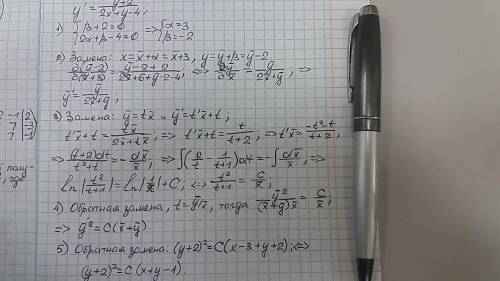 y' = (y+2)/(2x+y-4)
1) {β+2=0 {2α+β-4=0 => {α=3 {β=-2
2) Замена: x=x̄+α=x̄+3, y=ȳ+β=ȳ-2
∂(ȳ-2)/∂(x̄+3) = (ȳ-2+2)/(2x̄+6+ȳ-2-4), <=> ∂ȳ/∂x̄ = ȳ/(2x̄+ȳ); =>
ȳ' = ȳ/(2x̄+ȳ);
3) Замена: ȳ=tx̄ и ȳ'=t'x̄+t;
t'x̄+t = tx̄/(2x̄+tx̄); => t'x̄+t = t/(t+2); => t'x̄ = (-t²-t)/(t+2);
=> (t+2)dt/(t²+t) = -dx̄/x̄; => ∫(2/t - 1/(t+1))dt = -∫dx̄/x̄; =>
ln|t²/(t+1)| = ln|1/x̄| + C; <=> t²/(t+1) = C/x̄;
4) Обратная замена, t=ȳ/x̄, тогда ȳ²/((x̄+ȳ)x̄) = C/x̄;
=> ȳ²=C(x̄+ȳ)
5) Обратная замена: (y+2)²=C(x-3+y+2); <=>
(y+2)²=C(x+y-1).
2 -1 | 2
7 | -3
7 | -1
где